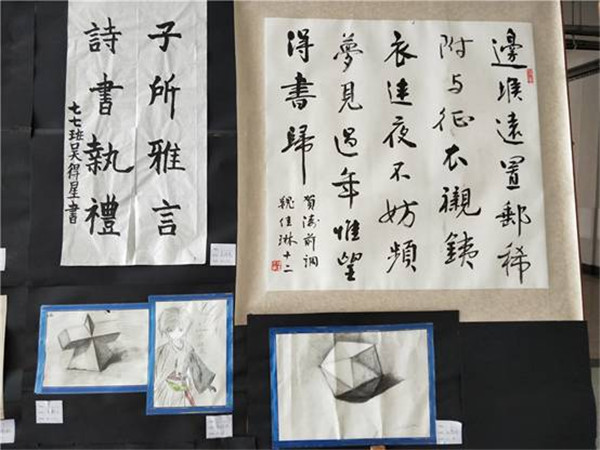 子所雅言
詩書執禮
七七班吴得星書
邊堠遠置郵稀
附与征衣襯銕
衣連夜不妨頻
夢見過年惟望
得書歸
賀濤前調
魏佳琳十二